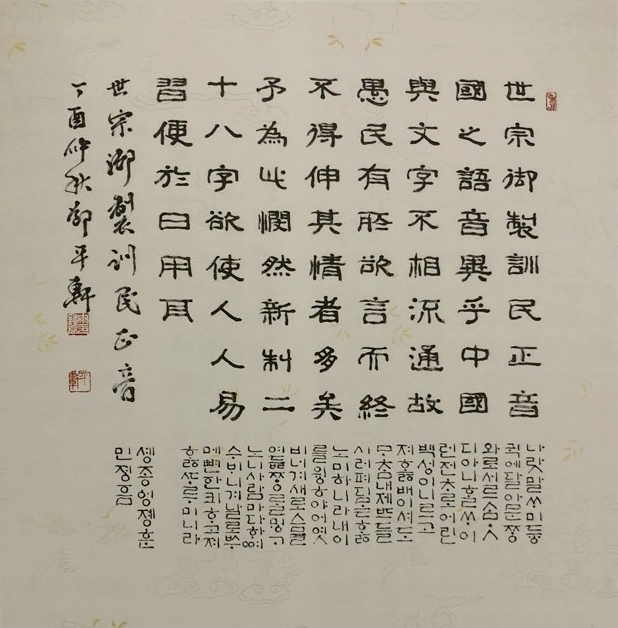 世宗御製訓民正音
國之語音異乎中國
與文字不相流通故
愚民有所欲言而終
不得伸其情者多矣
予為此憫然新制二
十八字欲使人人易
習便於日用耳
世宗御製訓民正音
丁酉仲秋平軒
나랏말ᄊᆞ미듕
귁에달아문ᄍᆞᆼ
와로서르ᄉᆞᄆᆞᆺ
디아니ᄒᆞᆯᄊᆡ이
런젼ᄎᆞ로어린
백셩이니르고
져ᄒᆞᇙ배이셔도
ᄆᆞᄎᆞᆷ내제ᄠᅳ들
시러펴디몯ᄒᆞᇙ
노미하니라내이
를윙ᄒᆞ야어엿
비너겨새로스믈
여듧ᄍᆞᆼ를ᄆᆡᇰᄀᆞ
노니사람마다ᄒᆡᅇᅧ
수ᄫᅵ니겨날로ᄡᅮ
메뼌한킈ᄒᆞ고져
ᄒᆞᇙᄯᆞᄅᆞ미니라
솅종엉졩훈
민졍음